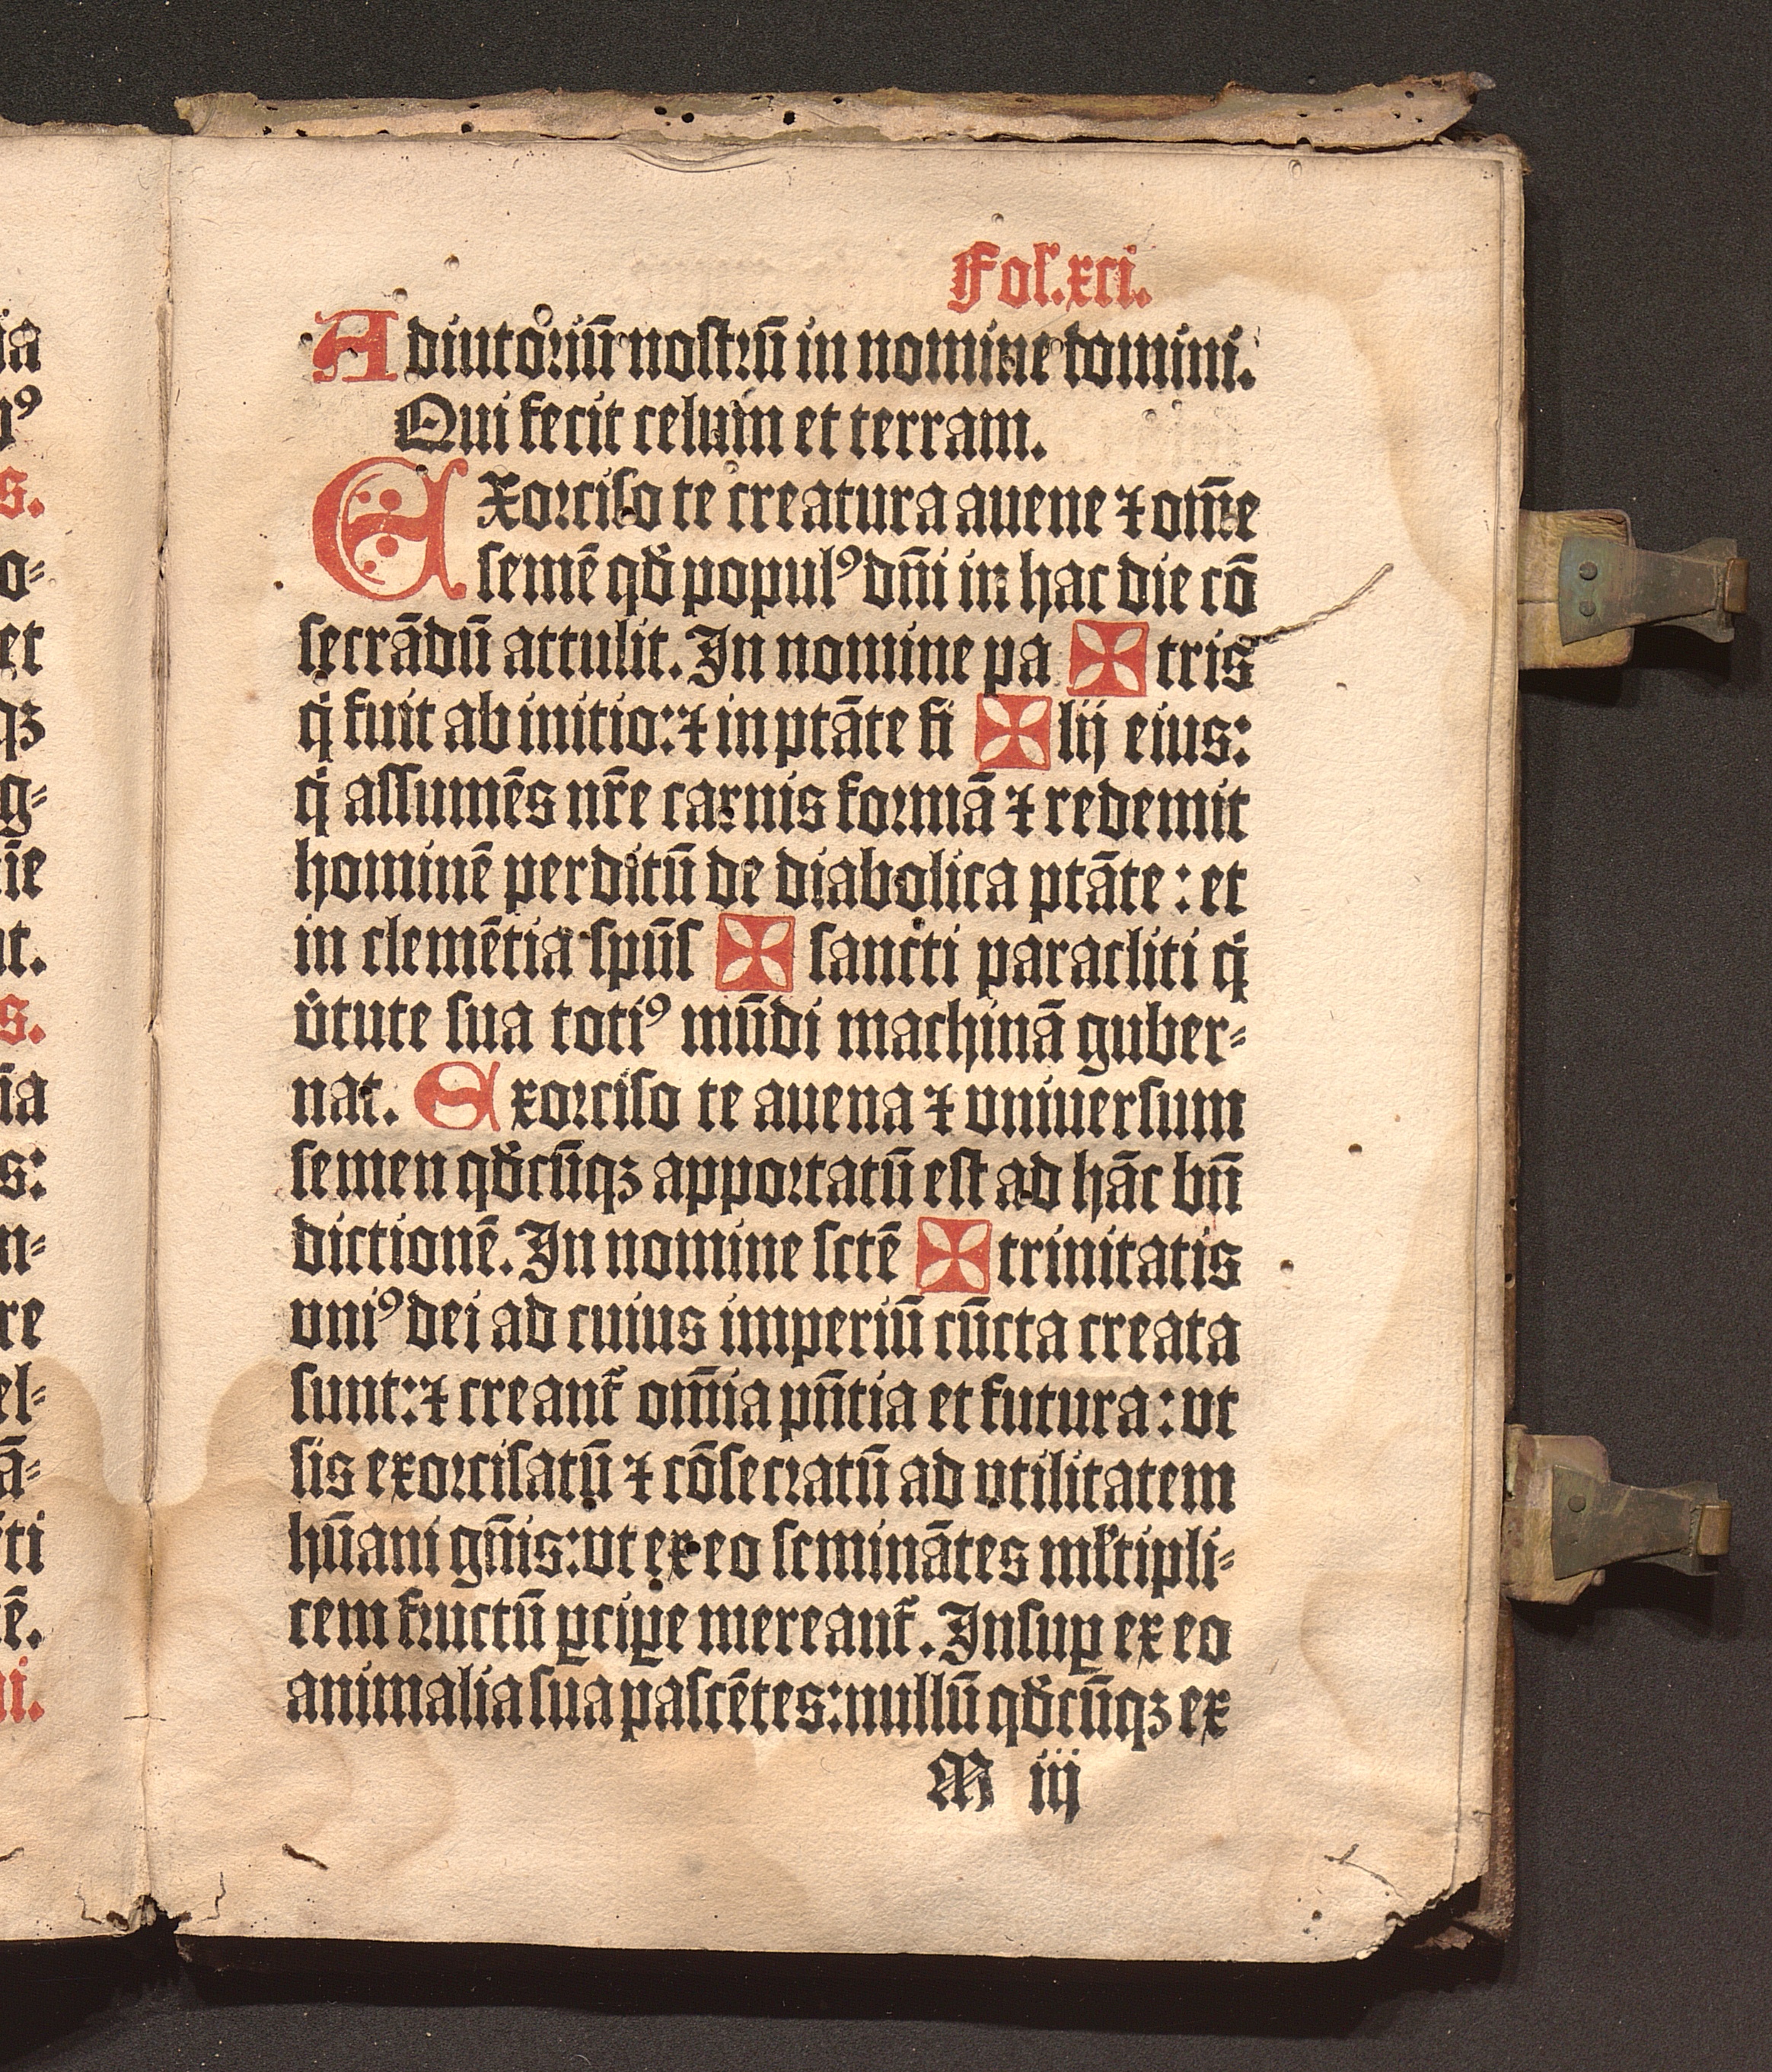 Fol.xci.
Adiutoriū nostrū in nomine domini.
Qui fecit celum et terram.
EXorciso te creatura auene ⁊ om̄e
semē qđ populꝰ dn̄i in hac die cō
secrādū attulit. In nomine pa ✠ tris
qͥ fuit ab initio: ⁊ in ptāte fi ✠ lij eius:
qͥ assumēs nr̄e carnis formā ⁊ redemit
hominē perditū de diabolica ptāte: et
in clemētia spūs ✠ sancti paracliti qͥ
v̓tute sua totiꝰ mūdi machinā guber⸗
nat. Exorciso te auena ⁊ vniuersum
semen qđcūqꝫ apportatū est ad hāc bn̄
dictionē. In nomine sctē ✠ trinitatis
vniꝰ dei ad cuius imperiū cūcta creata
sunt: ⁊ creant̃ om̄ia pn̄tia et futura: vt
sis exorcisatū ⁊ cōsecratū ad vtilitatem
hūani gn̄is: vt ex eo seminātes ml̄tipli⸗
cem fructū ꝑciꝑe mereant̃. Insuꝑ ex eo
animalia sua pascētes: nullū qđcūqꝫ ex
M iij